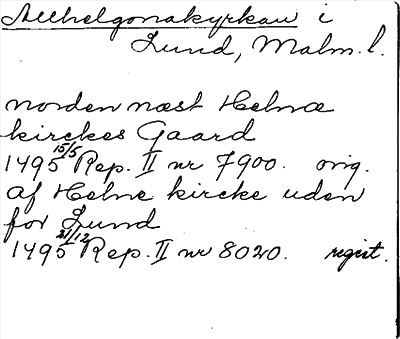 Allhelgonakyrkan i
Lund, Malm. l.
norden næst Helnæ
kirckes Gaard
1495 15/5 Rep. II nr 7900. orig.
af Helne kircke uden
for Lund
1495 21/12 Rep. II nr 8020. regist.